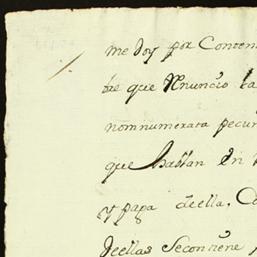 me doy por Conten
bre que Renuncio la
nonnumerata pecun
que hablan en
y paga de ella. Co
de ellas se contiene